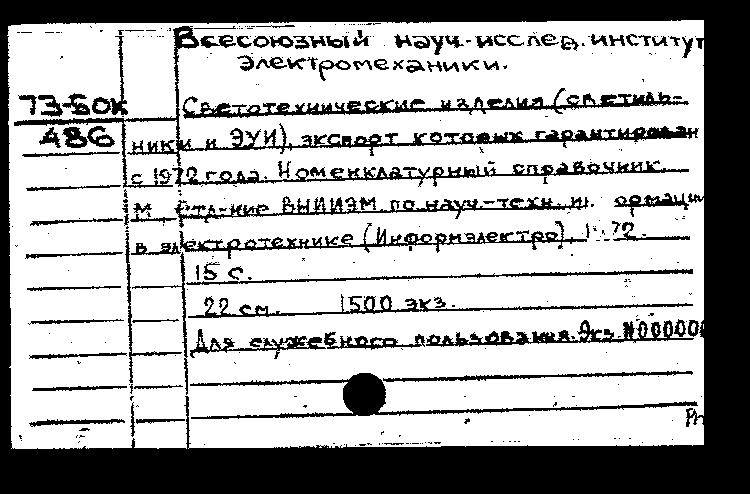 Всесоюзный науч.-исслед. институт
электромеханики.
73-БОК
486
Светотехнические изделия (светиль-
ники и ЭУИ), экспорт которых гарантирован
с 1972 года. Номенклатурный справочник.
М Отд-ние ВНИИЭМ по науч.-техн.
в электротехнике (Информэлектро), 1972.
15 с.
22 см. 1500 экз.
Для служебного пользования. Экз. №000000